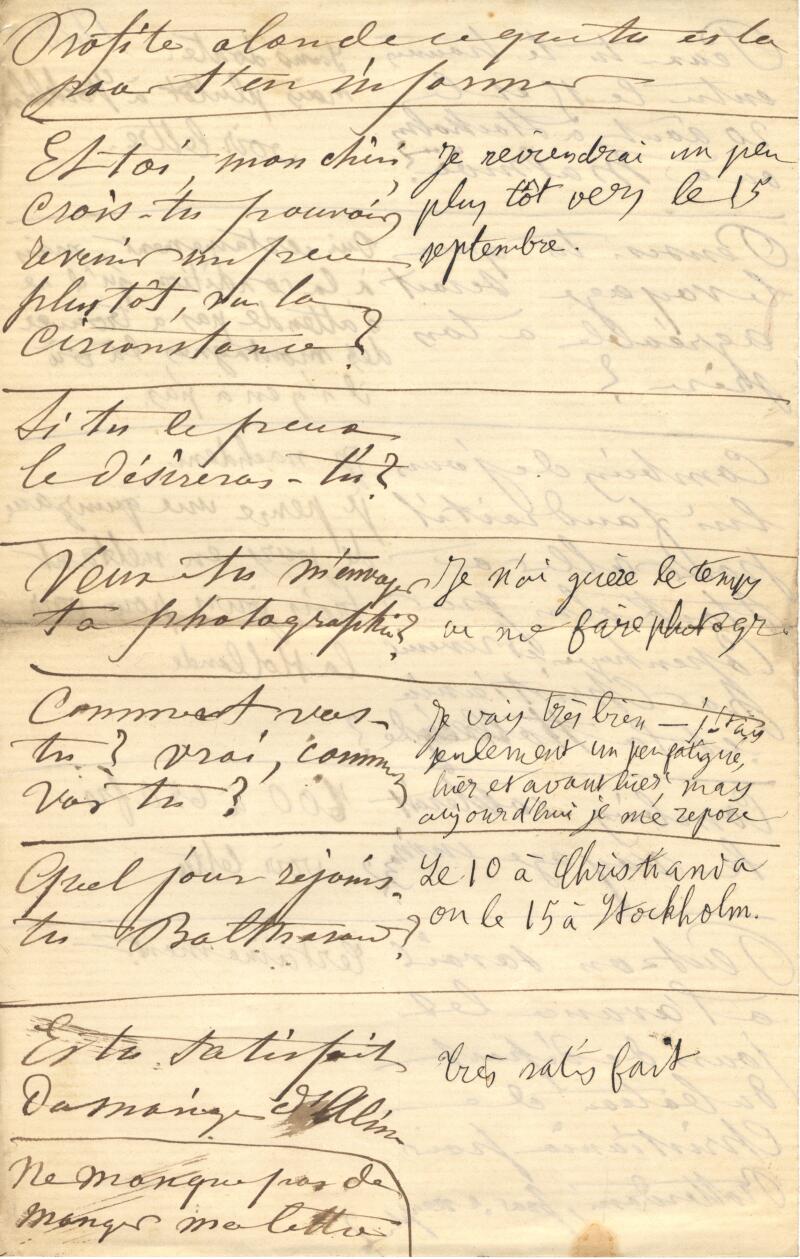 Profite alors de ce que tu es là
pour t'en informer
Et toi, mon chéri,
crois-tu pouvoir
revenir un peu
plus tôt, vu la
circonstance?
Je reviendrai un peu
plus tôt vers le 15
septembre.
Si tu le peux
le désireras-tu?
Veux-tu m'envoyer
ta photographie?
Je n'ai guère le temps
de me faire photogr
Comment vas-
tu? vrai, comment
vas tu?
Je vais très bien — j'étais
seulement un peu fatigué,
hier et avant hier mais
aujourd'hui je me repose
Quel jour rejoins-
tu Balthasar?
Le 10 à Christiania
ou le 15 à Stockholm.
Es tu satisfait
Du mariage d'Aline
très satisfait
Ne manque pas de
manger ma lettre